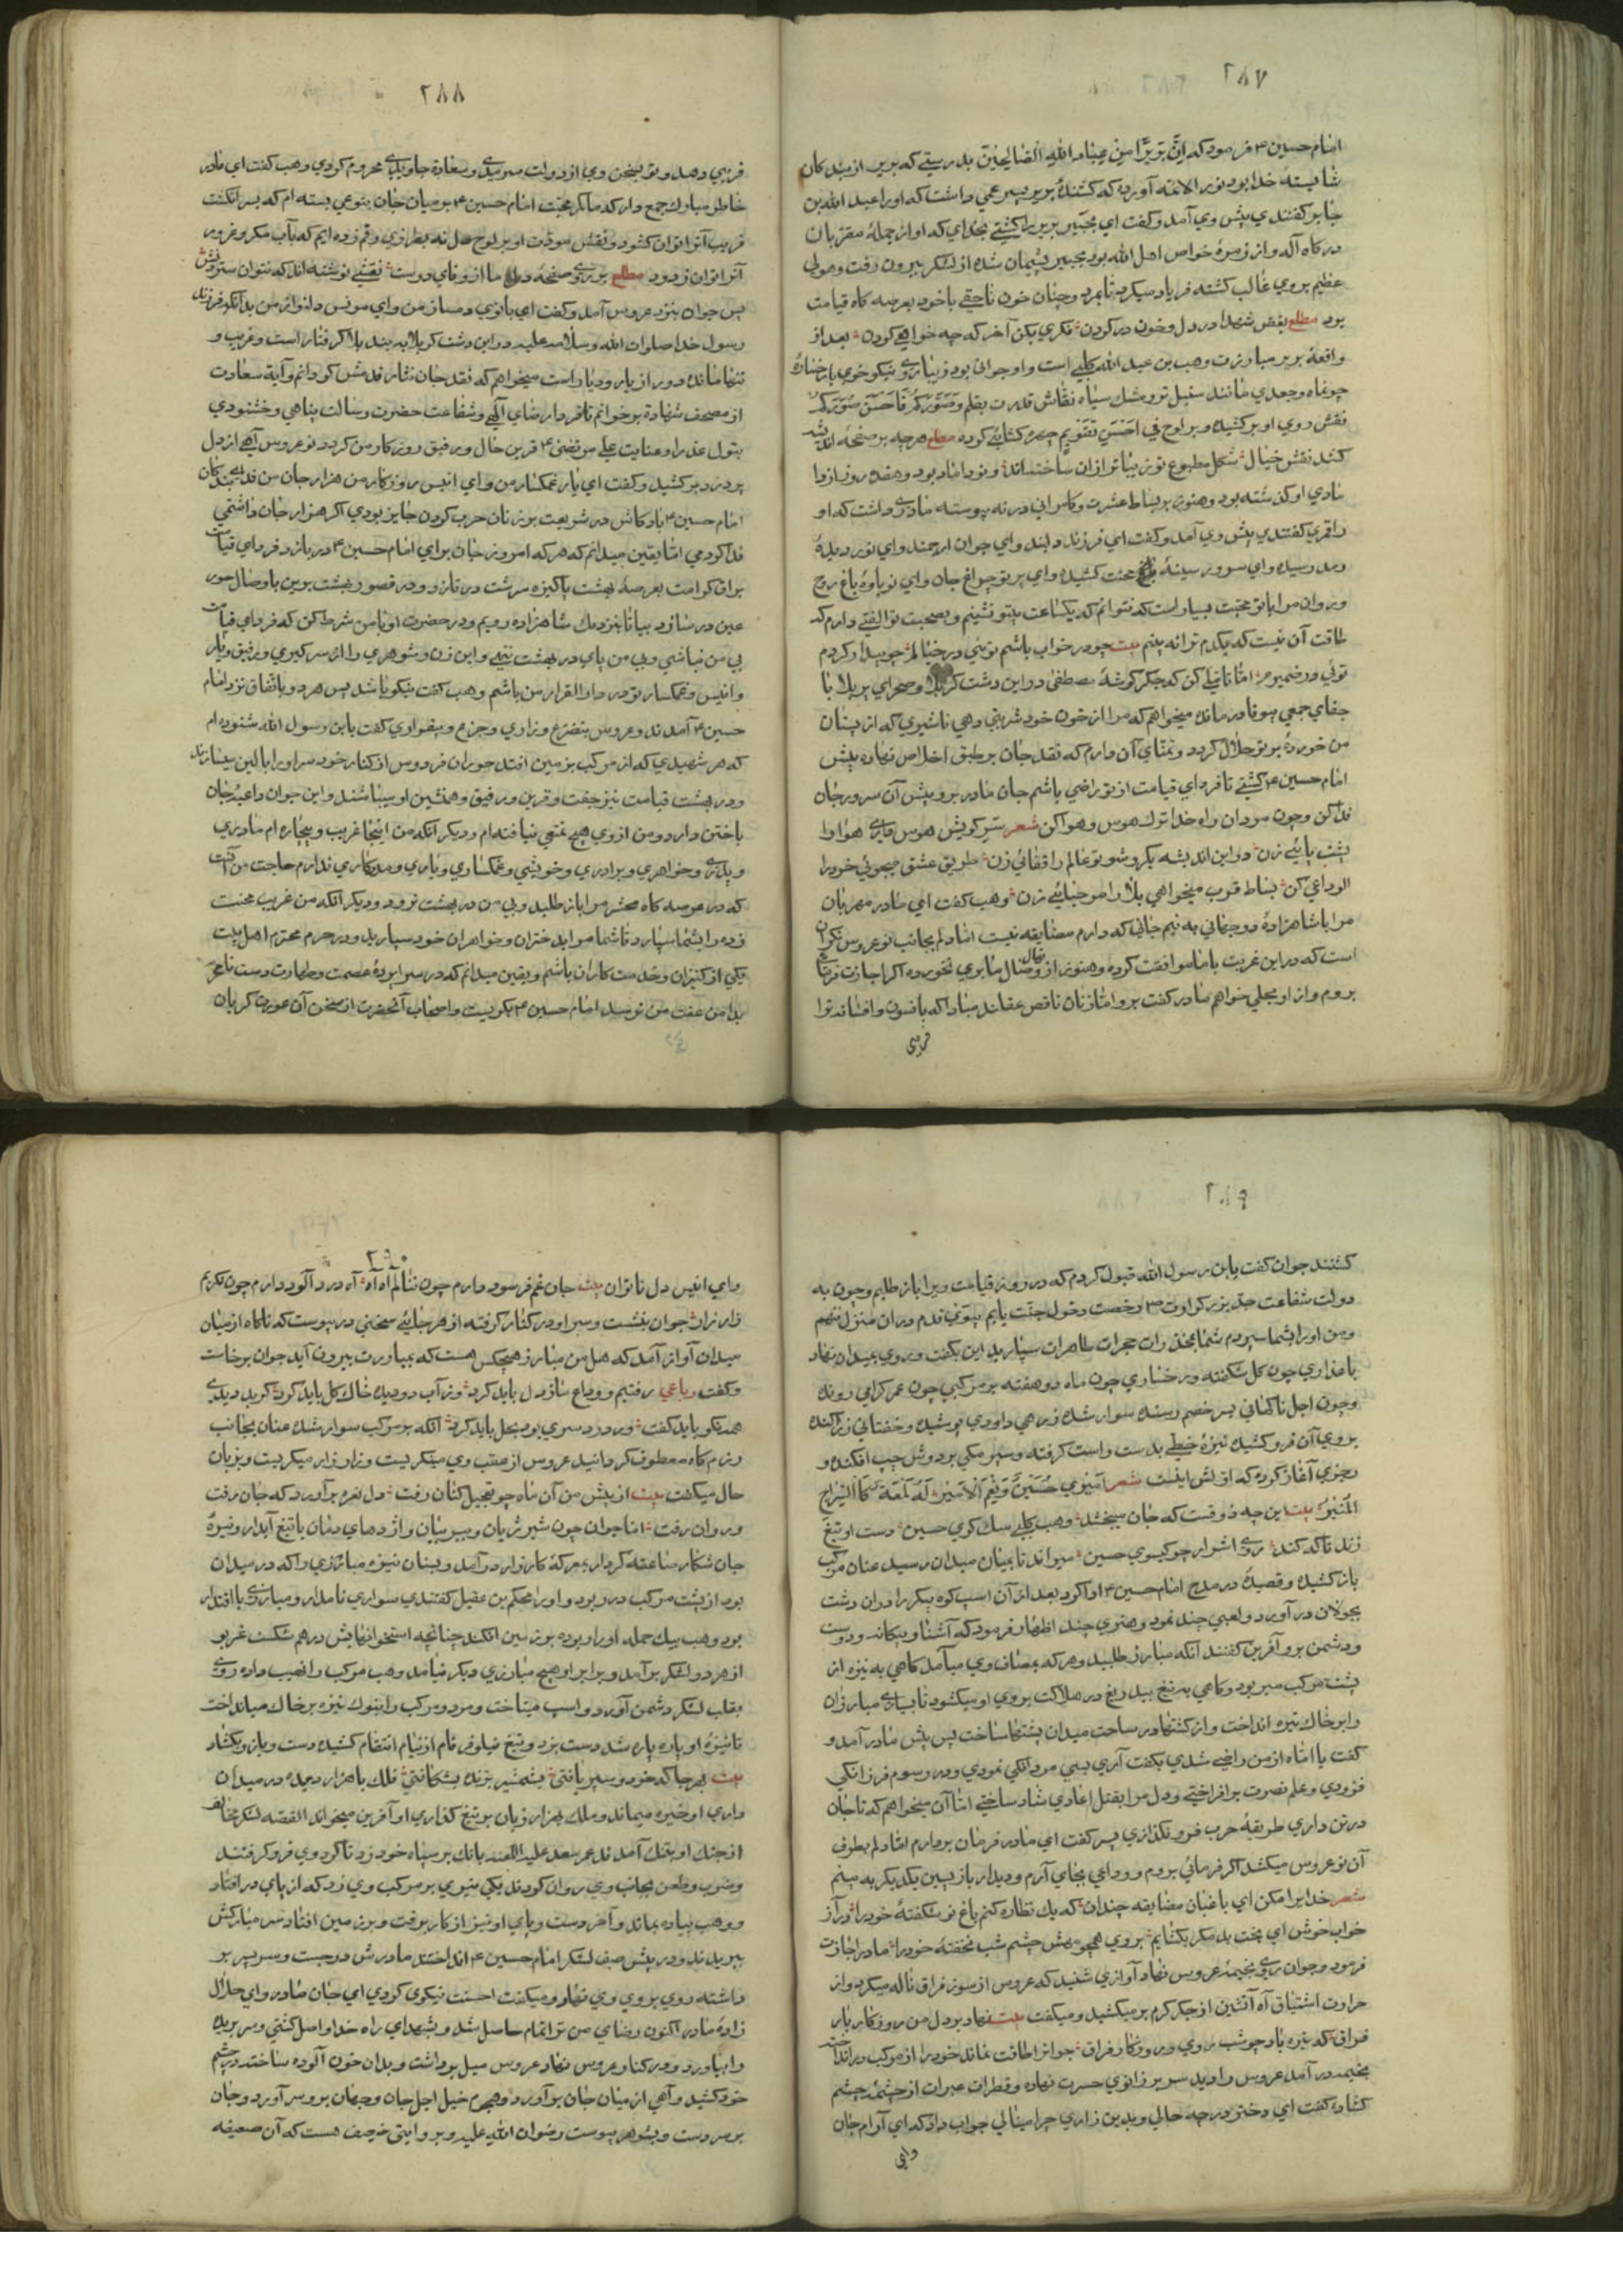 ٢٨٧
امام حسین ٤ فرمود که اِنَّ بُرَیْرًا مِنْ عِبَادِ اللهِ الصَّالِحِیْنَ بدرستی که بریر از بندکان
شایستهٔ خدا بود نور الائمه آورده که کشندهٔ بریر پسر عمی داشت که اورا عبد الله بن
جابر کفتندی پیش وی آمد و کفت ای بجیر بریر را کشتی بخدای که او از جملهٔ مقربان
درکاه آله و از زمرهٔ خواص اهل الله بود بجیر پشیمان شده از لشکر بیرون رفت و هولی
عظیم بروی غالب کشته فریاد میکرد تا بمرد و چنان خون ناحقی با خود بعرصه کاه قیامت
برد مطلع بغض شهدا در دل و خون در کردن فکری بکن آخر که چه خواهی کردن بعد از
واقعهٔ بریر مبارزت وهب بن عبد الله کلبی است و او جوانی بود زیبا روی نیکو خوی با رخسارهٔ
چو ماه و جعدی مانند سنبل تر و مشک سیاه نقاش قدرت بقلم وَصَوَّرَکُمْ فَاَحْسَنَ صُوَرَکُمْ
نقش روی او بر کشیده و بر لوح فی اَحْسَنِ تَقْوِیمٍ چهره کشایی کرده مطلع هر چه بر صفحهٔ اندیشه
کشد نقش خیال شکل مطبوع تو زیباتر از ان ساخته‌اند و نو داماد بود و هفده روز از دا
مادی او کذشته بود و هنوز بر بساط عشرت و کامرانی در نه پیوسته مادری داشت که او
را قمری کفتندی پیش وی آمد و کفت ای فرزند دلبند و ای جوان ارجمند و ای نور دیدهٔ
رمد رسیده و ای سرور سینهٔ محنت کشیده و ای پرتو چراغ جان و ای نوباوهٔ باغ روح
و روان مرا با تو محبت بسیار است که نتوانم که یکساعت بیتو نشینم و بصحبت تو الفتی دارم که
طاقت آن نیست که یکدم ترا نه بینم بیت چو در خواب باشم تویی در خیالم چو بیدار کردم
تویی در ضمیرم اما تاملی کن که جکر کوشهٔ مصطفی در این دشت کربلا و صحرای پر بلا با
جفای جمعی بیوفا در مانده میخواهم که مرا از خون خود شربتی دهی تا شیری که از پستان
من خوردهٔ بر تو حلال کردد و تمنای آن دارم که نقد جان بر طبق اخلاص نهاده پیش
امام حسین ٤ کشی تا فردای قیامت از تو راضی باشم جان مادر برو پیش آن سرور جان
فدا کن و چون مردان راه خدا ترک هوس و هوا کن شعر سر کویش هوس داری هوا را
پشت پایی زن در این اندیشه یکرو شو دو عالم را قفایی زن طریق عشق میجویی خرد را
الوداعی کن بساط قرب میخواهی بلا را مرحبایی زن وهب کفت ای مادر مهربان
مرا با شاهزادهٔ دو جهانی به نیم جانی که دارم مضایقه نیست اما دلم بجانب نو عروس نکران
است که در این غربت با ما موافقت کرده و هنوز از نهال وصال ما بری نخورده اکر اجازت فرمایی
بروم و از او بحلی خواهم مادر کفت برو اما زنان ناقص عقلند مبادا که بافسون و افسانه ترا
فریبی
٢٨٨
فریبی دهد و تو بسخن وی از دولت سرمدی و سعادة جاویدی محروم کردی وهب کفت ای مادر
خاطر مبارک جمع دار که ما کمر محبت امام حسین ٤ بر میان جان بنوعی بسته‌ام که بسر انکشت
فریب آنرا توان کشود و نقش مودّت او بر لوح دل نه بطرزی رقم زده‌ایم که بآب مکر و غرور
آنرا توان زدود مطلع بر روی صفحهٔ دل ما از وفای دوست نقشی نوشته‌اند که نتوان ستردنش
پس جوان بنزد عروس آمد و کفت ای بانوی دمساز من و ای مونس دلنواز من بدانکه فرزند
رسول خدا صلوات الله و سلامه علیه در این دشت کربلا به بند بلا کرفتار است و غریب و
تنها مانده دور از یار و دیار است میخواهم که نقد جان نثار قدمش کردانم و آیة سعادت
از مصحف شهادة برخوانم تا فردا رضای آلهی و شفاعت حضرت رسالت پناهی و خشنودی
بتول عذرا و عنایت علی مرتضی ٤ قرین حال و رفیق روزکار من کردد نو عروس آهی از دل
پر درد بر کشید و کفت ای یار غمکسار من و ای انیس روزکار من هزار جان من فدای بندکان
امام حسین ٤ باد کاش در شریعت بر زنان حرب کردن جایز بودی اکر هزار جان داشتمی
فدا کردمی اما یقین میدانم که هر که امروز جان برای امام حسین ٤ در بازد فردای قیامت
براق کرامت بعرصهٔ بهشت پاکیزه سرشت در تازد و در قصور بهشت برین با وصال حور
عین در سازد بیا تا بنزدیک شاهزاده رویم و در حضرت او با من شرط کن که فردای قیامت
بی من نباشی و بی من پای در بهشت ننهی و این زن و شوهری را از سر کیری و رفیق و یار
و انیس و غمکسار تو در دار القرار من باشم وهب کفت نیکو باشد پس هر دو باتفاق نزد امام
حسین ٤ آمدند و عروس بتضرع و زاری و جزع و بیقراری کفت یابن رسول الله شنوده‌ام
که هر شهیدی که از مرکب بزمین افتد حوران فردوس از کنار خود سر او را بالین میسازند
و در بهشت قیامت نیز جفت و قرین و رفیق و همنشین او میباشند و این جوان داعیهٔ جان
باختن دارد و من از وی هیچ تمتعی نیافته‌ام و دیکر آنکه من اینجا غریب و بیچاره‌ام مادری
و پدری و خواهری و برادری و خویشی و غمکساری و یاری و مددکاری ندارم حاجت من آنست
که در عرصه کاه محشر مرا باز طلبد و بی من در بهشت نرود و دیکر آنکه من غریب محنت
زده را بشما سپارد تا شما مرا بدختران و خواهران خود سپارید و در حرم محترم اهل بیت
یکی از کنیزان و خدمتکاران باشم و یقین میدانم که در سراپردهٔ عصمت و طهارت دست نامحرم
بدامن عفت من نرسد امام حسین ٤ بکریست و اصحاب آنحضرت از سخن آن عورت کریان
٢٨٩
کشتند جوان کفت یابن رسول الله قبول کردم که در روز قیامت ویرا باز طلبم و چون به
دولت شفاعت جد بزرکوارت رخصت دخول جنّت یابم بیوی قدم در ان منزل ننهم
و من او را بشما سپردم شما بمخدرات حجرات طاهرات سپارید این بکفت و روی بمیدان نهاد
با عذاری چون کل شکفته و رخساری چون ماه دو هفته بر مرکبی چون عمر کرامی رونده
و چون اجل ناکهانی بر خصم رسنده سوار شده زرهی داودی پوشیده و خفتانی زر آکنده
بروی آن فرو کشیده نیزهٔ خطی بدست راست کرفته و سپر مکی بر دوش چپ افکنده و
رجزی آغاز کرده که اولش اینست شعر اَمِیْرِیْ حُسَیْنٌ وَنِعْمَ الْاَمِیْرُ لَهُ لَمْعَةٌ کَالسِّرَاجِ
الْمُنِیْرِ بیت این چه ذوقست که جان میبخشد وهب کلبی سک کوی حسین دست او تیغ
زند تا که کند روی اشرار چو کیسوی حسین میراند تا بمیان میدان رسید عنان مرکب
باز کشیده و قصیدهٔ در مدح امام حسین ٤ ادا کرد بعد از آن اسپ کوه پیکر را در ان دشت
بجولان در آورد و لعبی چند نمود و هنری چند اظهار فرمود که آشنا و بیکانه و دوست
و دشمن برو آفرین کفتند آنکه مبارز طلبید و هر که بمصاف وی میآمد کاهی به نیزه از
پشت مرکب میربود و کاهی به تیغ بیدریغ در هلاکت بروی او میکشود تا بسیاری مبارزان
را بر خاک تیره انداخت و از کشتها در ساحت میدان پشتها ساخت پس پیش مادر آمد و
کفت یا اماه از من راضی شدی بکفت آری بسی مردانکی نمودی و در رسوم فرزانکی
فزودی و علم نصرت بر افراختی و دل مرا بقتل اعادی شاد ساختی اما آن میخواهم که تا جان
در تن داری طریقهٔ حرب فرو نکذاری پسر کفت ای مادر فرمان بردارم اما دلم بطرف
آن نو عروس میکشد اکر فرمائی بروم و وداعی بجای آرم و دیدار باز پسین یکدیکر به بینم
شعر خدایرا مکن ای باغبان مضایقه چندان که یک نظاره کنم باغ نو شکفتهٔ خود را در آ ز
خواب خوش ای بخت بد مکر بکشایم بروی همچو مهش چشم شب نخفتهٔ خود را مادر اجازت
فرمود و جوان روی بخیمهٔ عروس نهاد آوازی شنید که عروس از سوز فراق ناله میکرد و از
حرارت اشتیاق آه آتشین از جکر کرم بر میکشید و میکفت بیت نهاد بر دل من روزکار بار
فراق که تیره باد چو شب روی روزکار فراق جوانرا طاقت نماند خود را از مرکب در انداخت
بخیمه در آمد عروس را دید سر بر زانوی حسرت نهاده و قطرات عبرات از چشمهٔ چشم
کشاده کفت ای دختر در چه حالی و بدین زاری چرا مینالی جواب داد که ای آرام جان
وای
٢٩٠
وای انیس دل ناتوان بیت جان غم فرسود دارم چون ننالم آه آه آه درد آلود دارم چون نکریم
زار زار جوان بنشست و سر او در کنار کرفته از هر جایی سخنی در پیوست که ناکاه از میان
میدان آواز آمد که هل من مبارز هیچکس هست که بمبارزت بیرون آید جوان برخاست
و کفت رباعی رفتیم و وداع ساز دل باید کرد وز آب دو دیده خاک کل باید کرد کر بد دیدی
همه نکو باید کفت ور درد سری بود بحل باید کرد آنکه بر مرکب سوار شده عنان بجانب
رزم کاه معطوف کردانید عروس از عقب وی مینکریست و زار زار میکریست و بزبان
حال میکفت بیت از پیش من آن ماه چو تعجیل کنان رفت دل نعره بر آورد که جان رفت
و روان رفت اما جوان چون شیر ژیان و ببر بیان و اژدهای دمان با تیغ آبدار و نیزهٔ
جان شکار صاعقه کردار بمعرکهٔ کارزار در آمد و بسنان نیزه مبارزی را که در میدان
بود از پشت مرکب در ربود و او را محکم بن طفیل کفتندی سواری نامدار و مبارزی با اقتدار
بود وهب بیک حمله او را ربوده بر زمین افکند چنانچه استخوانهایش درهم شکست غریو
از هر دو لشکر بر آمد و برابر او هیچ مبارزی دیکر نیامد وهب مرکب را نهیب داده روی
بقلب لشکر دشمن آورد و اسپ میتاخت و مرد و مرکب را بنوک نیزه بر خاک میانداخت
تا نیزهٔ او پاره پاره شد دست بزد و تیغ نیلوفر فام از نیام انتقام کشیده دست و بازو بکشاد
بیت بهر جا که خود و سپر یافتی بشمشیر برنده بشکافتی فلک با هزار دیده در میدان
داری او خیره میماند و ملک بهزار زبان بر تیغ کذاری او آفرین میخواند القصه لشکر مخالف
از جنک او بتنک آمدند عمر سعد علیه اللعنه بانک بر سپاه خود زد تا کرد وی فرو کرفتند
و ضرب و طعن بجانب وی روان کردند یکی تیری بر مرکب وی زد که از پای در افتاد
و وهب پیاده بماند و آخر دست و پای او نیز از کار برفت و بر زمین افتاد سر مبارکش
ببریدند و در پیش صف لشکر امام حسین ٤ انداختند مادرش در جست و سر پسر بر
داشته روی بر روی وی نهاد و میکفت احسنت نیکوی کردی ای جان مادر و ای حلال
زادهٔ مادر اکنون رضای من ترا تمام حاصل شد و بشهدای راه خدا واصل کشتی و سر بریده
را بیاورد و در کنار عروس نهاد عروس میل برداشت و بدان خون آلوده ساخته در چشم
خود کشید و آهی از میان جان بر آورد و هجرم خیل اجل جان و جهان برو سر آورد و جان
بر سر دست و بشوهر پیوست رضوان الله علیه و بروایتی ضعیف هست که آن ضعیفه